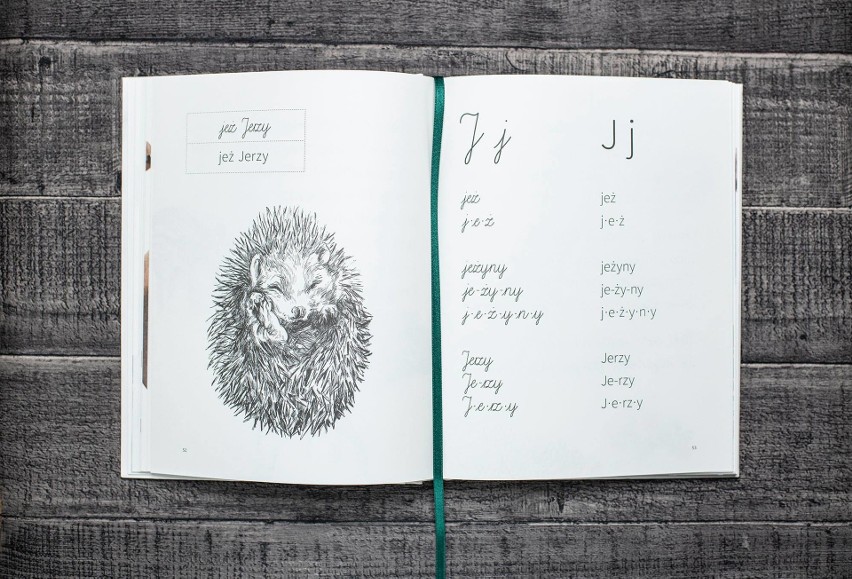 jeż Jerzy
jeż Jerzy
J j J j
jeż jeż
j·e·ż j·e·ż
jeżyny jeżyny
je-ży-ny je-ży-ny
j·e·ż·y·n·y j·e·ż·y·n·y
Jerzy Jerzy
Je-rzy Je-rzy
J·e·rz·y J·e·rz·y